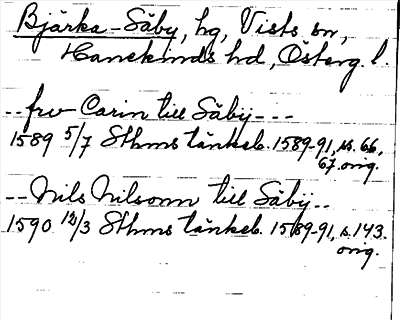 Bjärka-Säby, hg, Vists sn,
Hanekinds hd, Österg. l.
-- fru Carin till Säby ---
1589 5/7 Sthms tänkeb. 1589-91, s. 66,
67. orig.
-- Nils Nilsonn till Säby --
1590 12/3 Sthms tänkeb. 1589-91, s. 143.
orig.